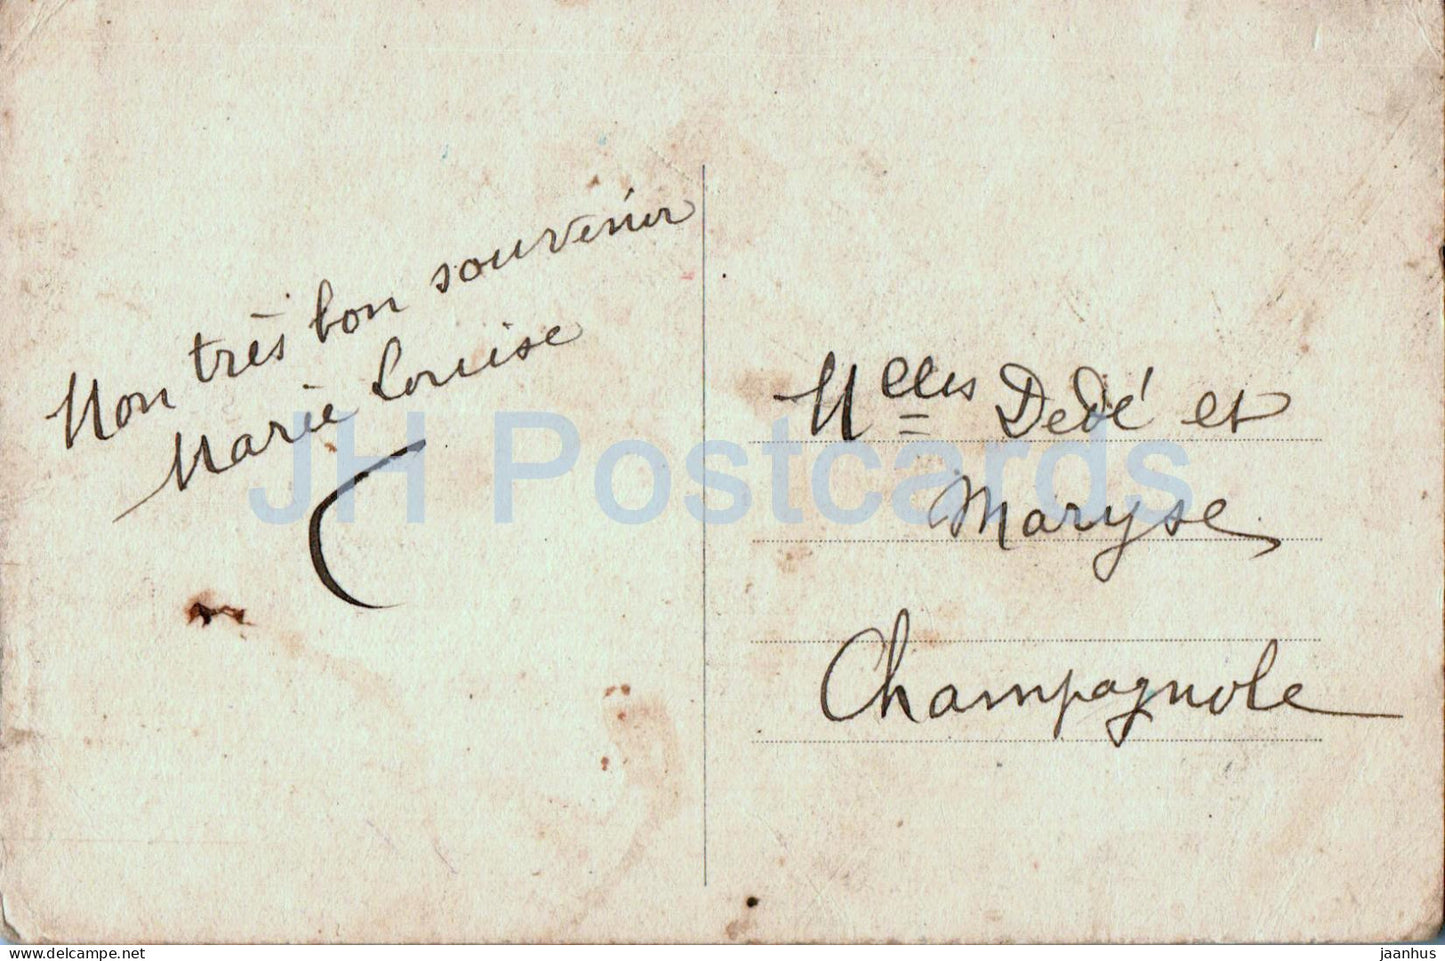 Mon très bon souvenir
Marie Louise
Melles Dedé et
Maryse
Champagnole
JH Postcards
www.delcampe.net
jaanhus